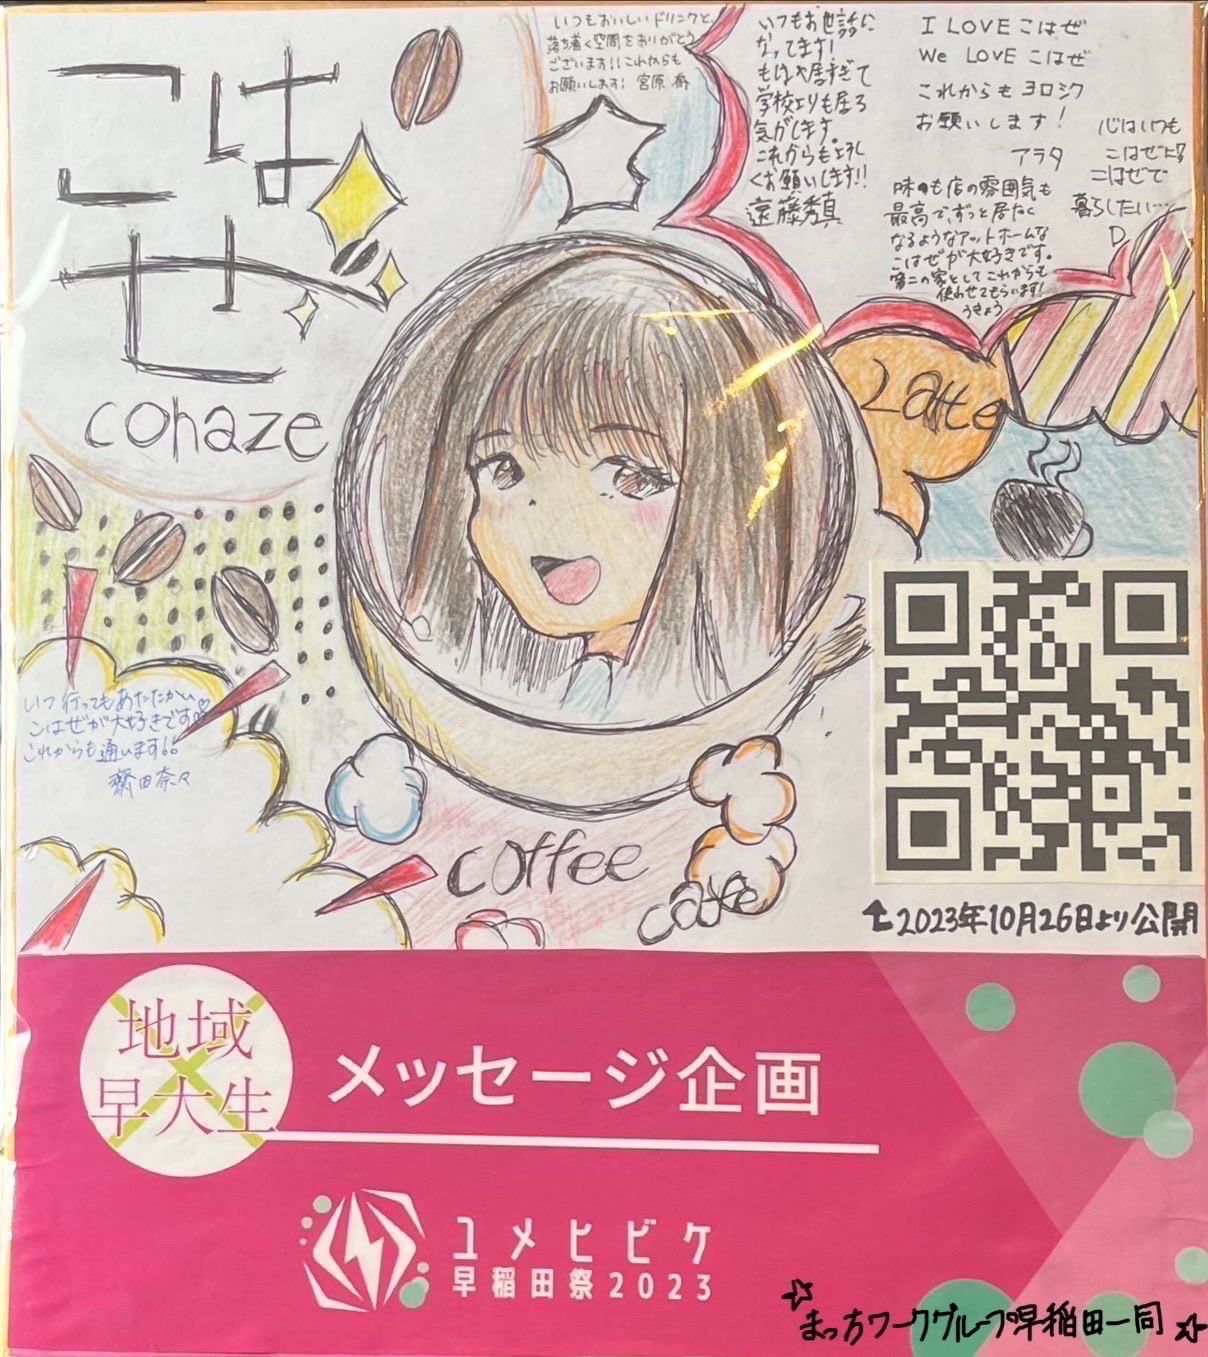 こは
ぜ
cohaze
いつもおいしいドリンクと、
落ち着く空間をありがとう
ございます!!これからも
お願いします! 宮原
いつもお世話に
なってます!
もはや居すぎて
学校よりも居る
気がします。
これからもよろし
くお願いします!!
遠藤秀真
I LOVE こはぜ
We LOVE こはぜ
これからもヨロシク
お願いします!
アラタ
心はいつも
こはぜに
こはぜで
暮らしたい…
D
味も店の雰囲気も
最高で、ずっと居たく
なるようなアットホームな
こはぜが大好きです。
第二の家としてこれからも
使わせてもらいます!
うきょう
Latte
いつ行ってもあたたかい
こはぜが大好きです
これからも通います!!
齋田奈々
coffee
cafe
↑2023年10月26日より公開
地域
早大生
メッセージ企画
ユメヒビケ
早稲田祭2023
☆まっちワークグループ早稲田一同☆